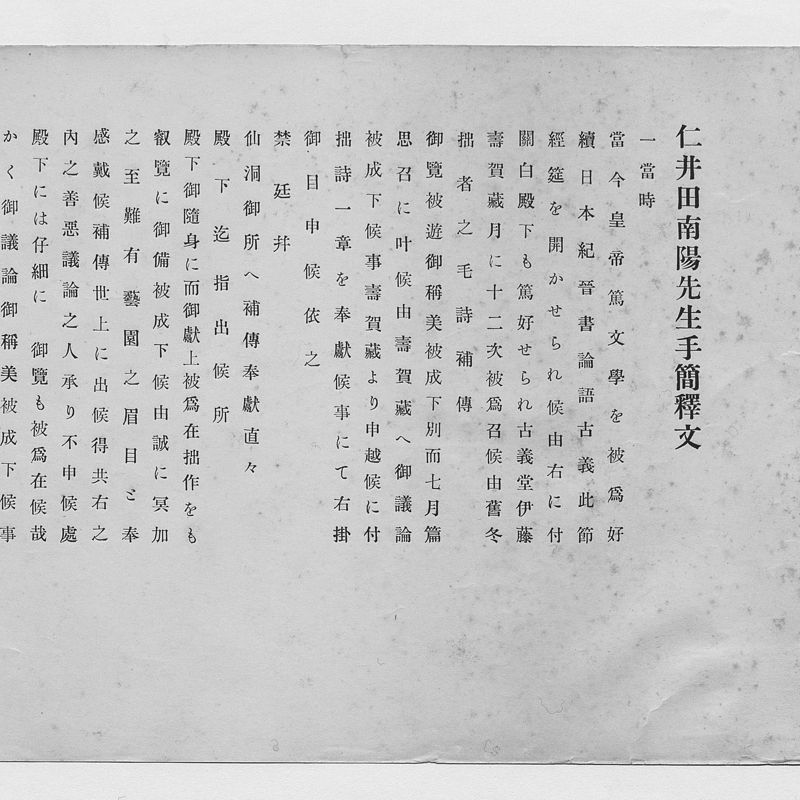 仁井田南陽先生手簡釋文
一當時
當今皇帝篤文學を被爲好
續日本紀晉書論語古義此節
經筵を開かせられ候由右に付
關白殿下も篤好せられ古義堂伊藤
壽賀藏月に十二次被爲召候由舊冬
拙者之毛詩補傳
御覽被遊御稱美被成下別而七月篇
思召に叶候由壽賀藏へ御議論
被成下候事壽賀藏より申越候に付
拙詩一章を奉獻候事にて右掛
御目申候依之
禁廷幷
仙洞御所へ補傳奉獻直々
殿下迄指出候所
殿下御隨身に而御獻上被爲在拙作をも
叡覽に御備被成下候由誠に冥加
之至難有藝園之眉目と奉
感戴候補傳世上に出候得共右之
內之善惡議論之人承り不申候處
殿下には仔細に　御覽も被爲在候哉
かく御議論御稱美被成下候事